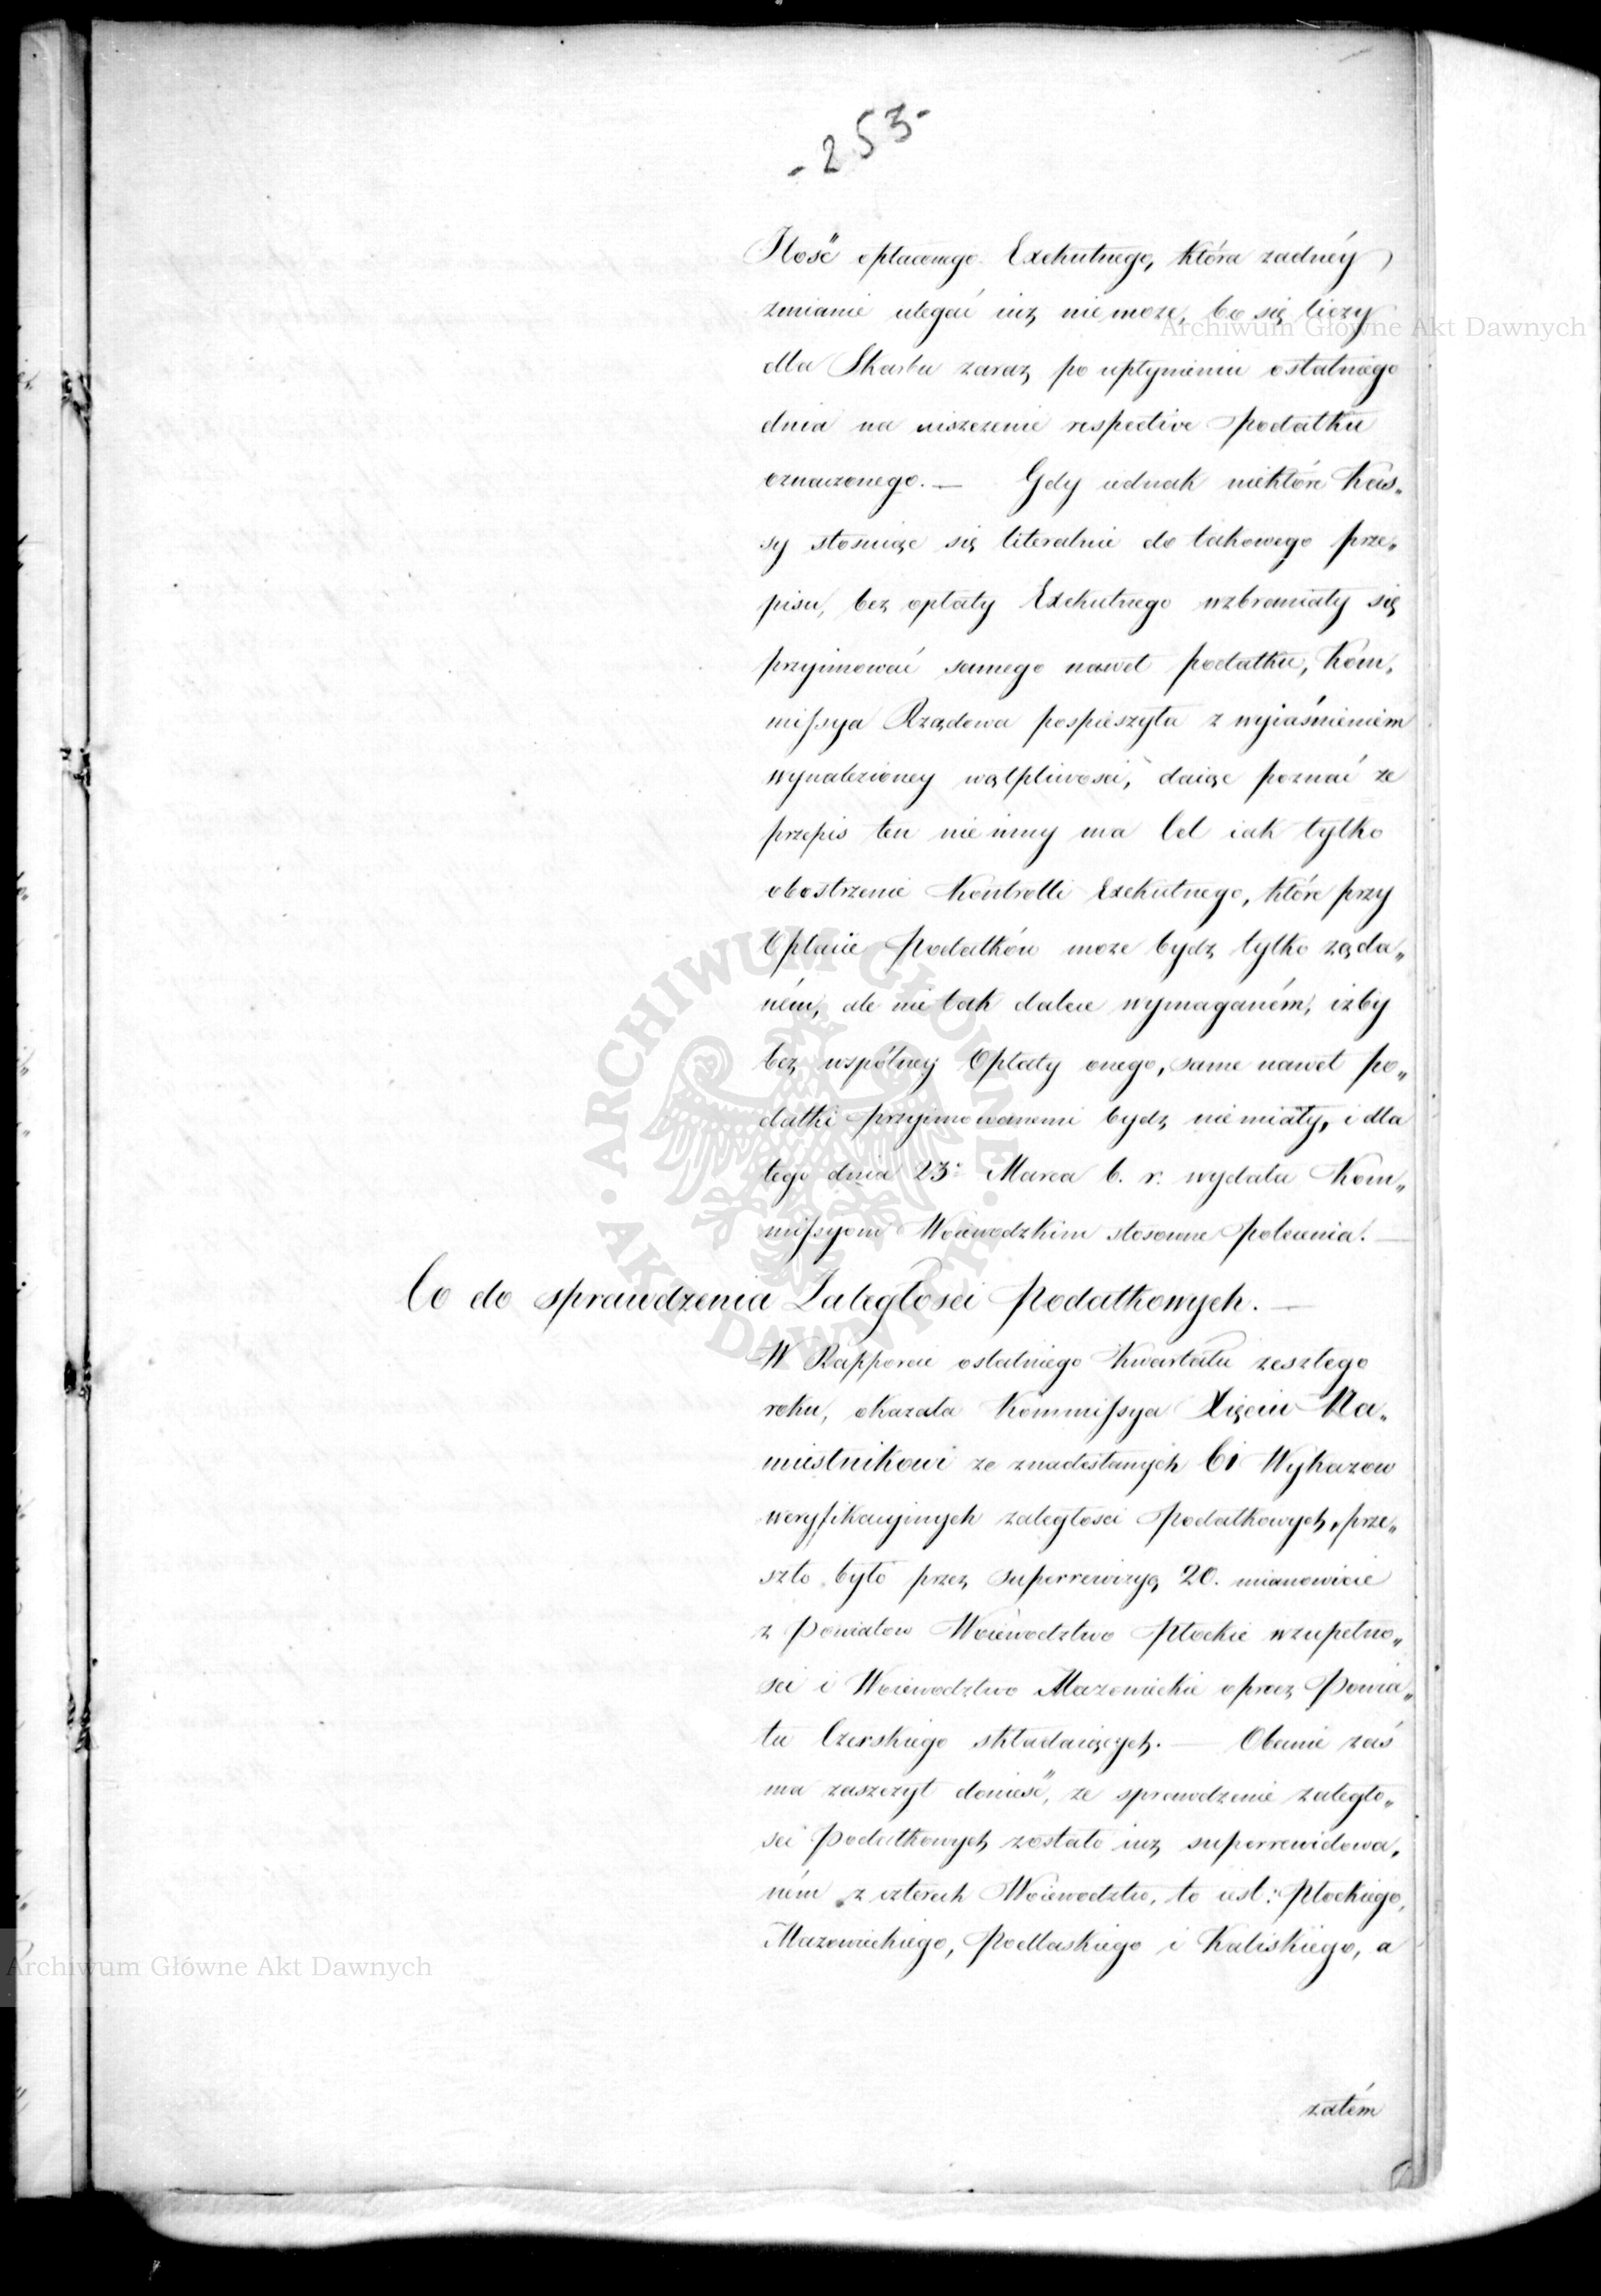 - 253 -
Ilość opłaconego Exekutnego, która zadnéy
zmianie ulegać iuz nie moze, bo się liczy
dla Skarbu zaraz po upłynieniu ostatniego
dnia na uiszczenie respective Podatku
oznaczonego. — Gdy iednak niektóre Kas„
sy stosuiąc się literalnie do takowego prze„
pisu, bez opłaty Exekutnego wzbraniały się
przyimować samego nawet podatku, Kom„
missya Rządowa pospieszyła z wyiaśnieniem
wynalezioney wątpliwości, daiąc poznać ze
przepis ten nie inny ma Cel iak tylko
obostrzenie Kontrolli Exekutnego, które przy
Opłacie Podatków moze bydz tylko ząda„
ném, ale nie tak dalece wymaganém, izby
bez wspólney Opłaty onego, same nawet po„
datki przyimowanemi bydz nie miały, i dla
tego dnia 23° Marca b. r. wydała Kom„
missyom Woiewodzkim stosowne Polecenia. —
Co do sprawdzenia Zaległosci Podatkowych. —
W Rapporcie ostatniego Kwartału zeszłego
roku, okazała Kommissya Xięciu Na„
miestnikowi ze znadesłanych 61 Wykazow
weryfikacyinych zaległosci Podatkowych, prze„
szło było przez superrewizyą 20. mianowicie
z Powiatow Woiewodztwo Płockie w zupełno„
sci i Woiewodztwo Mazowieckie oprócz Powia„
tu Czerskiego składaiących. — Obecnie zaś
ma zaszczyt donieść, ze sprawdzenie zaległo„
sci Podatkowych zostało iuz superrewidowa„
ném z czterech Woiewodztw, to iest: Płockiego,
Mazowieckiego, Podlaskiego i Kaliskiego, a
zatém
Archiwum Główne Akt Dawnych
Archiwum Główne Akt Dawnych
ARCHIWUM GŁÓWNE AKT DAWNYCH